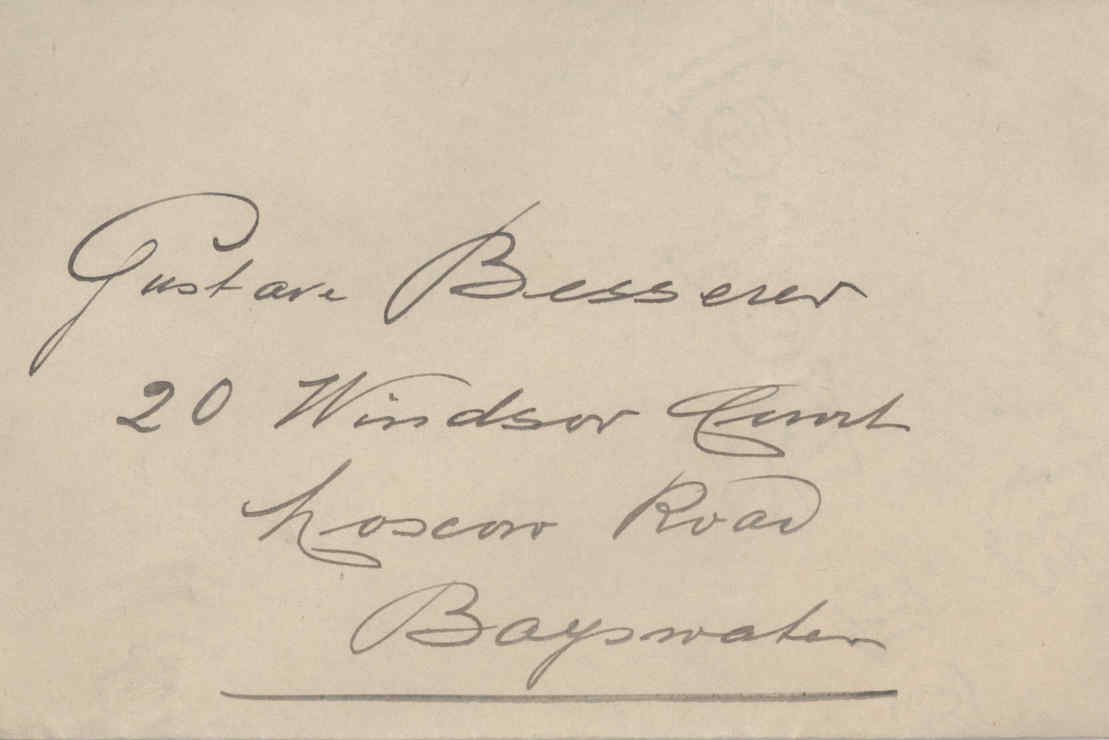 Gustave Besserer
20 Windsor Court
Moscow Road
Bayswater